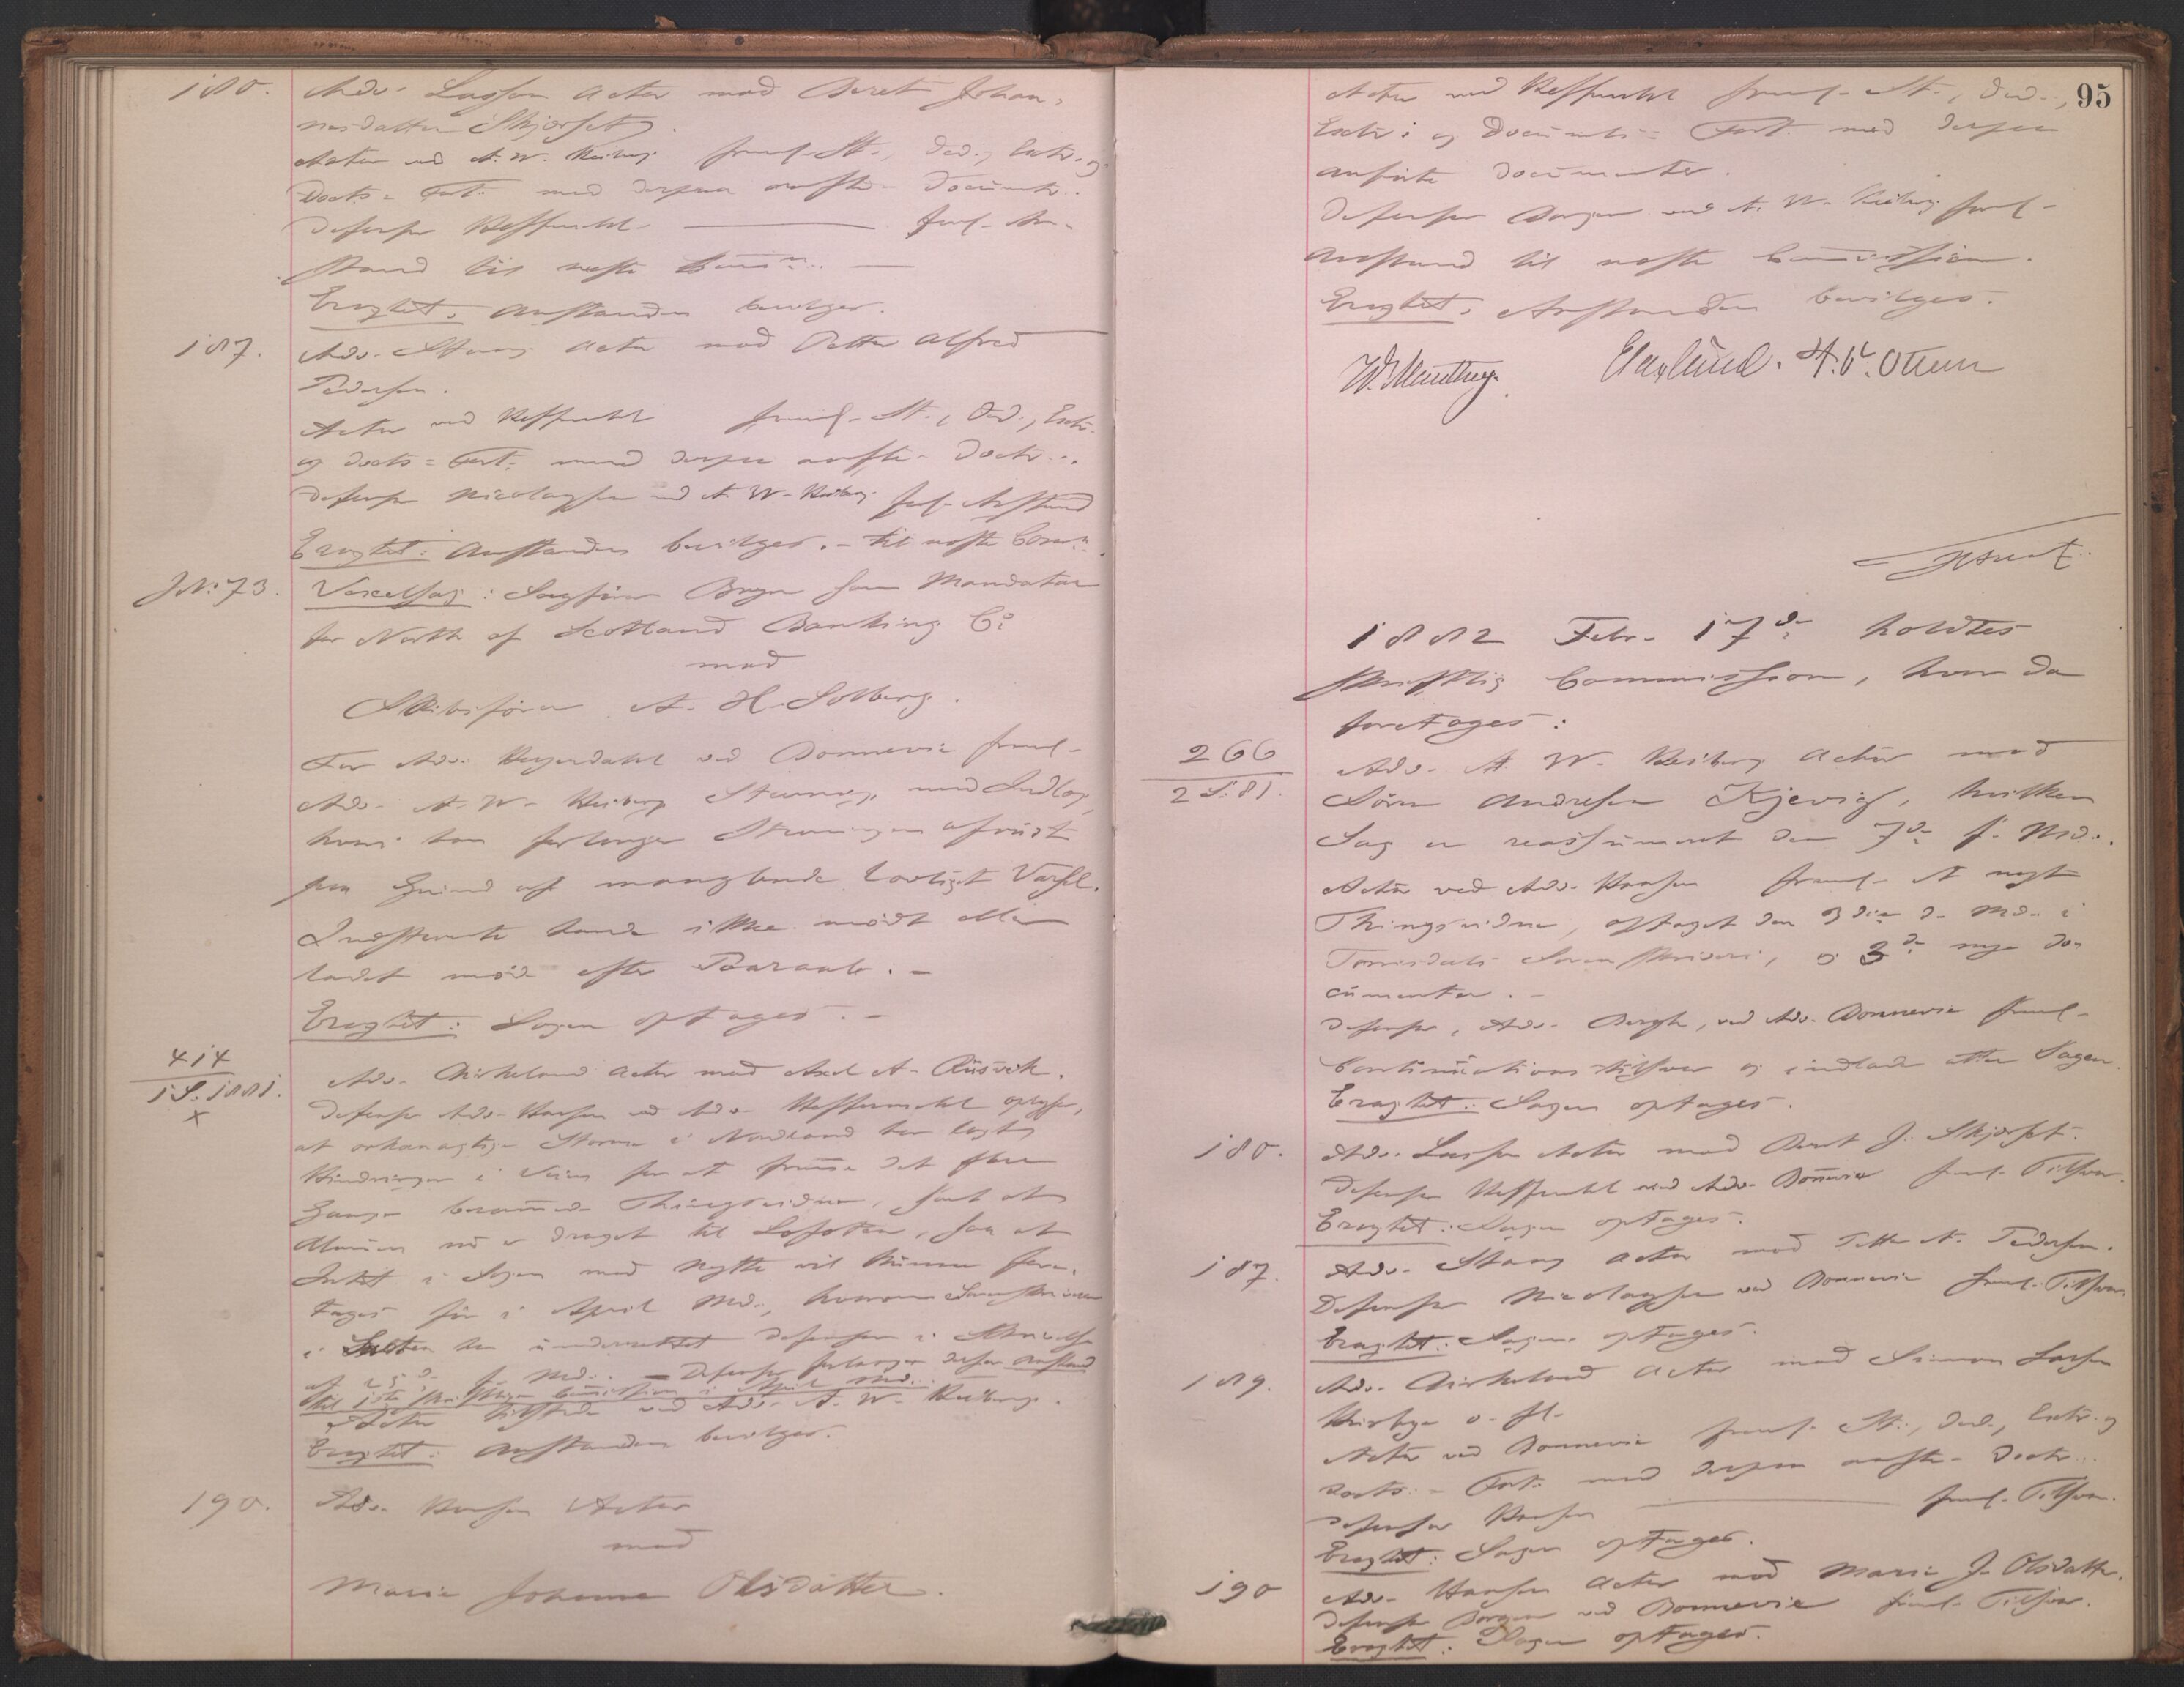 180.
Adv. Lasson Actor mod Beret Johan-
nesdatter Skjørset
Actor ved A. W. Heiberg freml. St., Ded., Extr. og
Docts = Fort. med derpaa anførte Documenter.
Defensor Heffermehl freml. An-
stand til næste Comm.
Eragtet: Anstanden bevilges.
187.
Adv. Stang Actor mod Petter Alfred
Pedersen.
Actor ved Heffermehl freml. St., Ded., Extr.
og Docts = Fort. med derpaa anførte Doctr.
Defensor Nicolaysen ved A. W. Heiberg forl. Anstand
Eragtet: Anstanden bevilges. - til næste Comm.
J.N: 73.
Vexelsag: Sagfører Bryn som Mandatar
for North of Scotland Banking Co
mod
Skibsfører A. H. Solberg.
For Adv. ved Bonnevie freml.
Adv. A. W. Heiberg Stevning med Indlæg,
hvori han forlanger Stevningen afvist
paa Grund af manglende lovligt Varsel.
Indstevnte havde ikke mødt eller
ladet møde efter Paaraab. -
Eragtet: Sagen optages. -
414
1 S. 1881.
x
Adv. Birkeland Actor mod Axel A. Rüsvik.
Defensor Adv. Hansen ved Adv. Heffermehl oplyser,
at orkanagtige Storme i Nordland har lagt
Hindringer i Veien for at fremme det flere
Gange berammede Thingsvidne, samt at
Almuen nu er draget til Lofoten, saa at
Intet i Sagen med Nytte vil kunne fore-
tages før i April Md., hvorom Sorenskriveren
i Salten har underrettet Defensor i Skrivelse
af 25 f. Md. - Defensor forlanger derfor Anstand
til 1ste skriftlige Commission i April Md.
Actor tilstede ved Adv. A. W. Heiberg.
Eragtet: Anstanden bevilges.
190.
Adv. Hansen Actor
mod
Marie Johanne Olsdatter.
95
Actor ved Heffermehl freml. St., Ded.,
Extr. og Documents = Fort. med derpaa
anførte Documenter.
Defensor Borgen ved A. W. Heiberg forl.
Anstand til næste Commission.
Eragtet: Anstanden bevilges.
1882 Febr. 17de holdtes
skriftlig Commission, hvor da
foretoges:
266
2 S. 81.
Adv. A. W. Heiberg Actor mod
Søren Andresen Kjevig, hvilken
Sag er reassumeret den 7de f. Md.
Actor ved Adv. Hansen freml. et nyt
Thingsvidne, optaget den 3die d. Md. i
Torrisdals Sorenskriveri, og 3de nye Do-
cumenter. -
Defensor, Adv. Bergh, ved Adv. Bonnevie freml.
Continuationstilsvar og indlod atter Sagen.
Eragtet: Sagen optages.
180.
Adv. Lasson Actor mod Beret J. Skjørset.
Defensor Heffermehl ved Adv. Bonnevie freml. Tilsvar.
Eragtet: Sagen optages.
187.
Adv. Stang Actor mod Petter A. Pedersen.
Defensor Nicolaysen ved Bonnevie freml. Tilsvar.
Eragtet: Sagen optages.
189.
Adv. Birkeland Actor mod Simon Larsen
o. fl.
Actor ved Bonnevie freml. St., Ded., Extr. og
Docts. = Fort. med derpaa anførte Doctr.
Defensor Hansen freml. Tilsvar.
Eragtet: Sagen optages.
190
Adv. Hansen Actor mod Marie J. Olsdatter.
Defensor Borgen ved Bonnevie freml. Tilsvar.
Eragtet: Sagen optages.